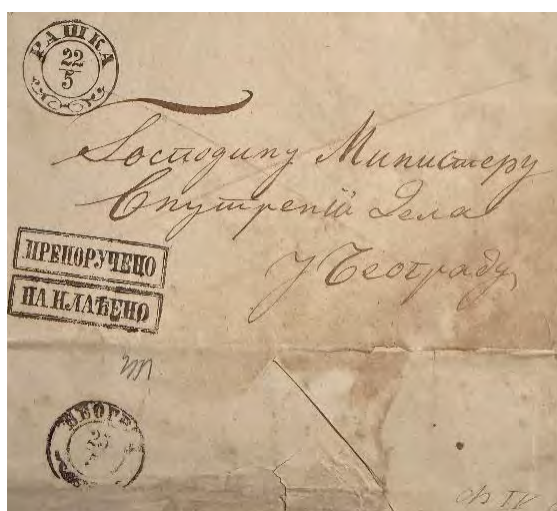 РАШКА
22
5
Господину Министеру
Внутреній Дела
у Београду
ПРЕПОРУЧЕНО
ПЛАЋЕНО
БЕОГР
25